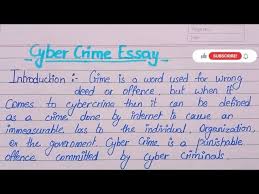 Cyber Crime Essay
SUBSCRIBE
Introduction :- Crime is a word used for wrong
deed or offence, but when it
comes to cybercrime then it can be defined
as a crime done by internet to cause an
immeasurable loss to the individual, Organization,
or the government. Cyber Crime is a punishable
offence committed by cyber criminals.